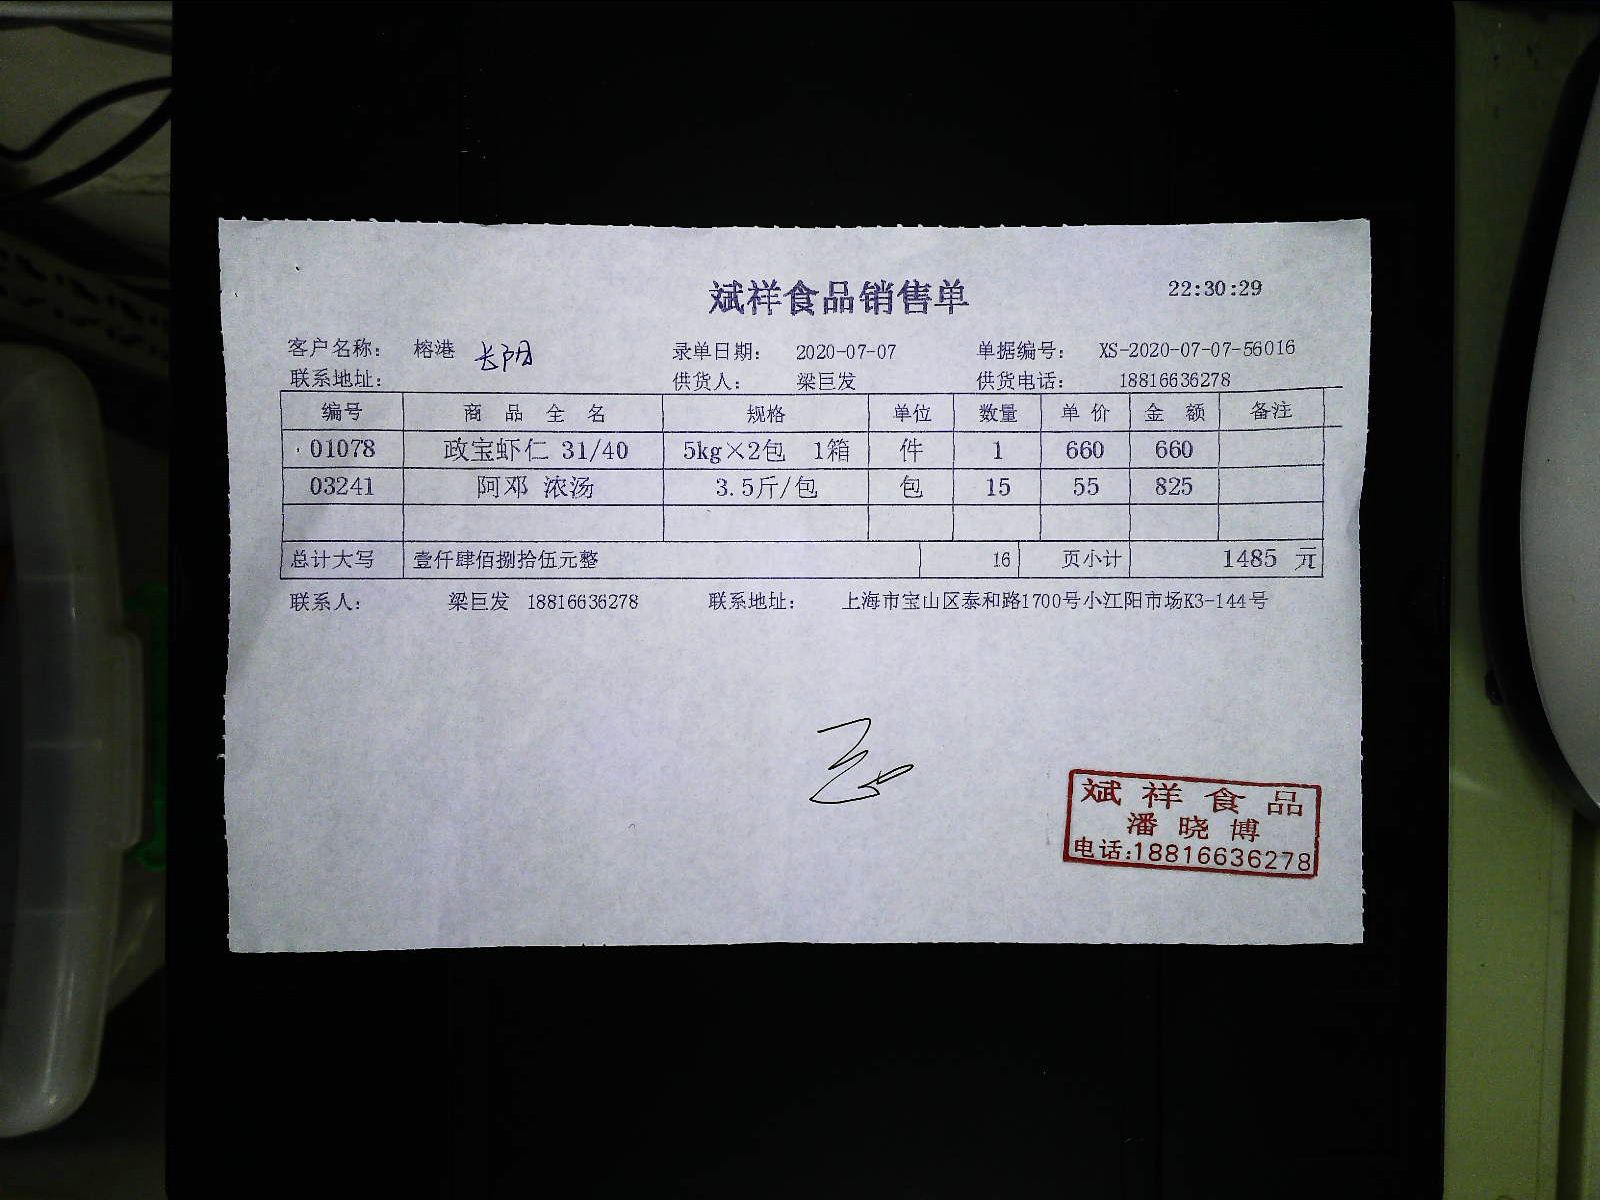 斌祥食品销售单 22:30:29
客户名称: 榕港 长阳 录单日期: 2020-07-07 单据编号: XS-2020-07-07-56016
联系地址: 供货人: 梁巨发 供货电话: 18816636278
编号 商品全名 规格 单位 数量 单价 金额 备注
01078 政宝虾仁 31/40 5kg×2包 1箱 件 1 660 660
03241 阿邓 浓汤 3.5斤/包 包 15 55 825
总计大写 壹仟肆佰捌拾伍元整 16 页小计 1485 元
联系人: 梁巨发 18816636278 联系地址: 上海市宝山区泰和路1700号小江阳市场K3-144号
斌祥食品
潘晓博
电话:18816636278